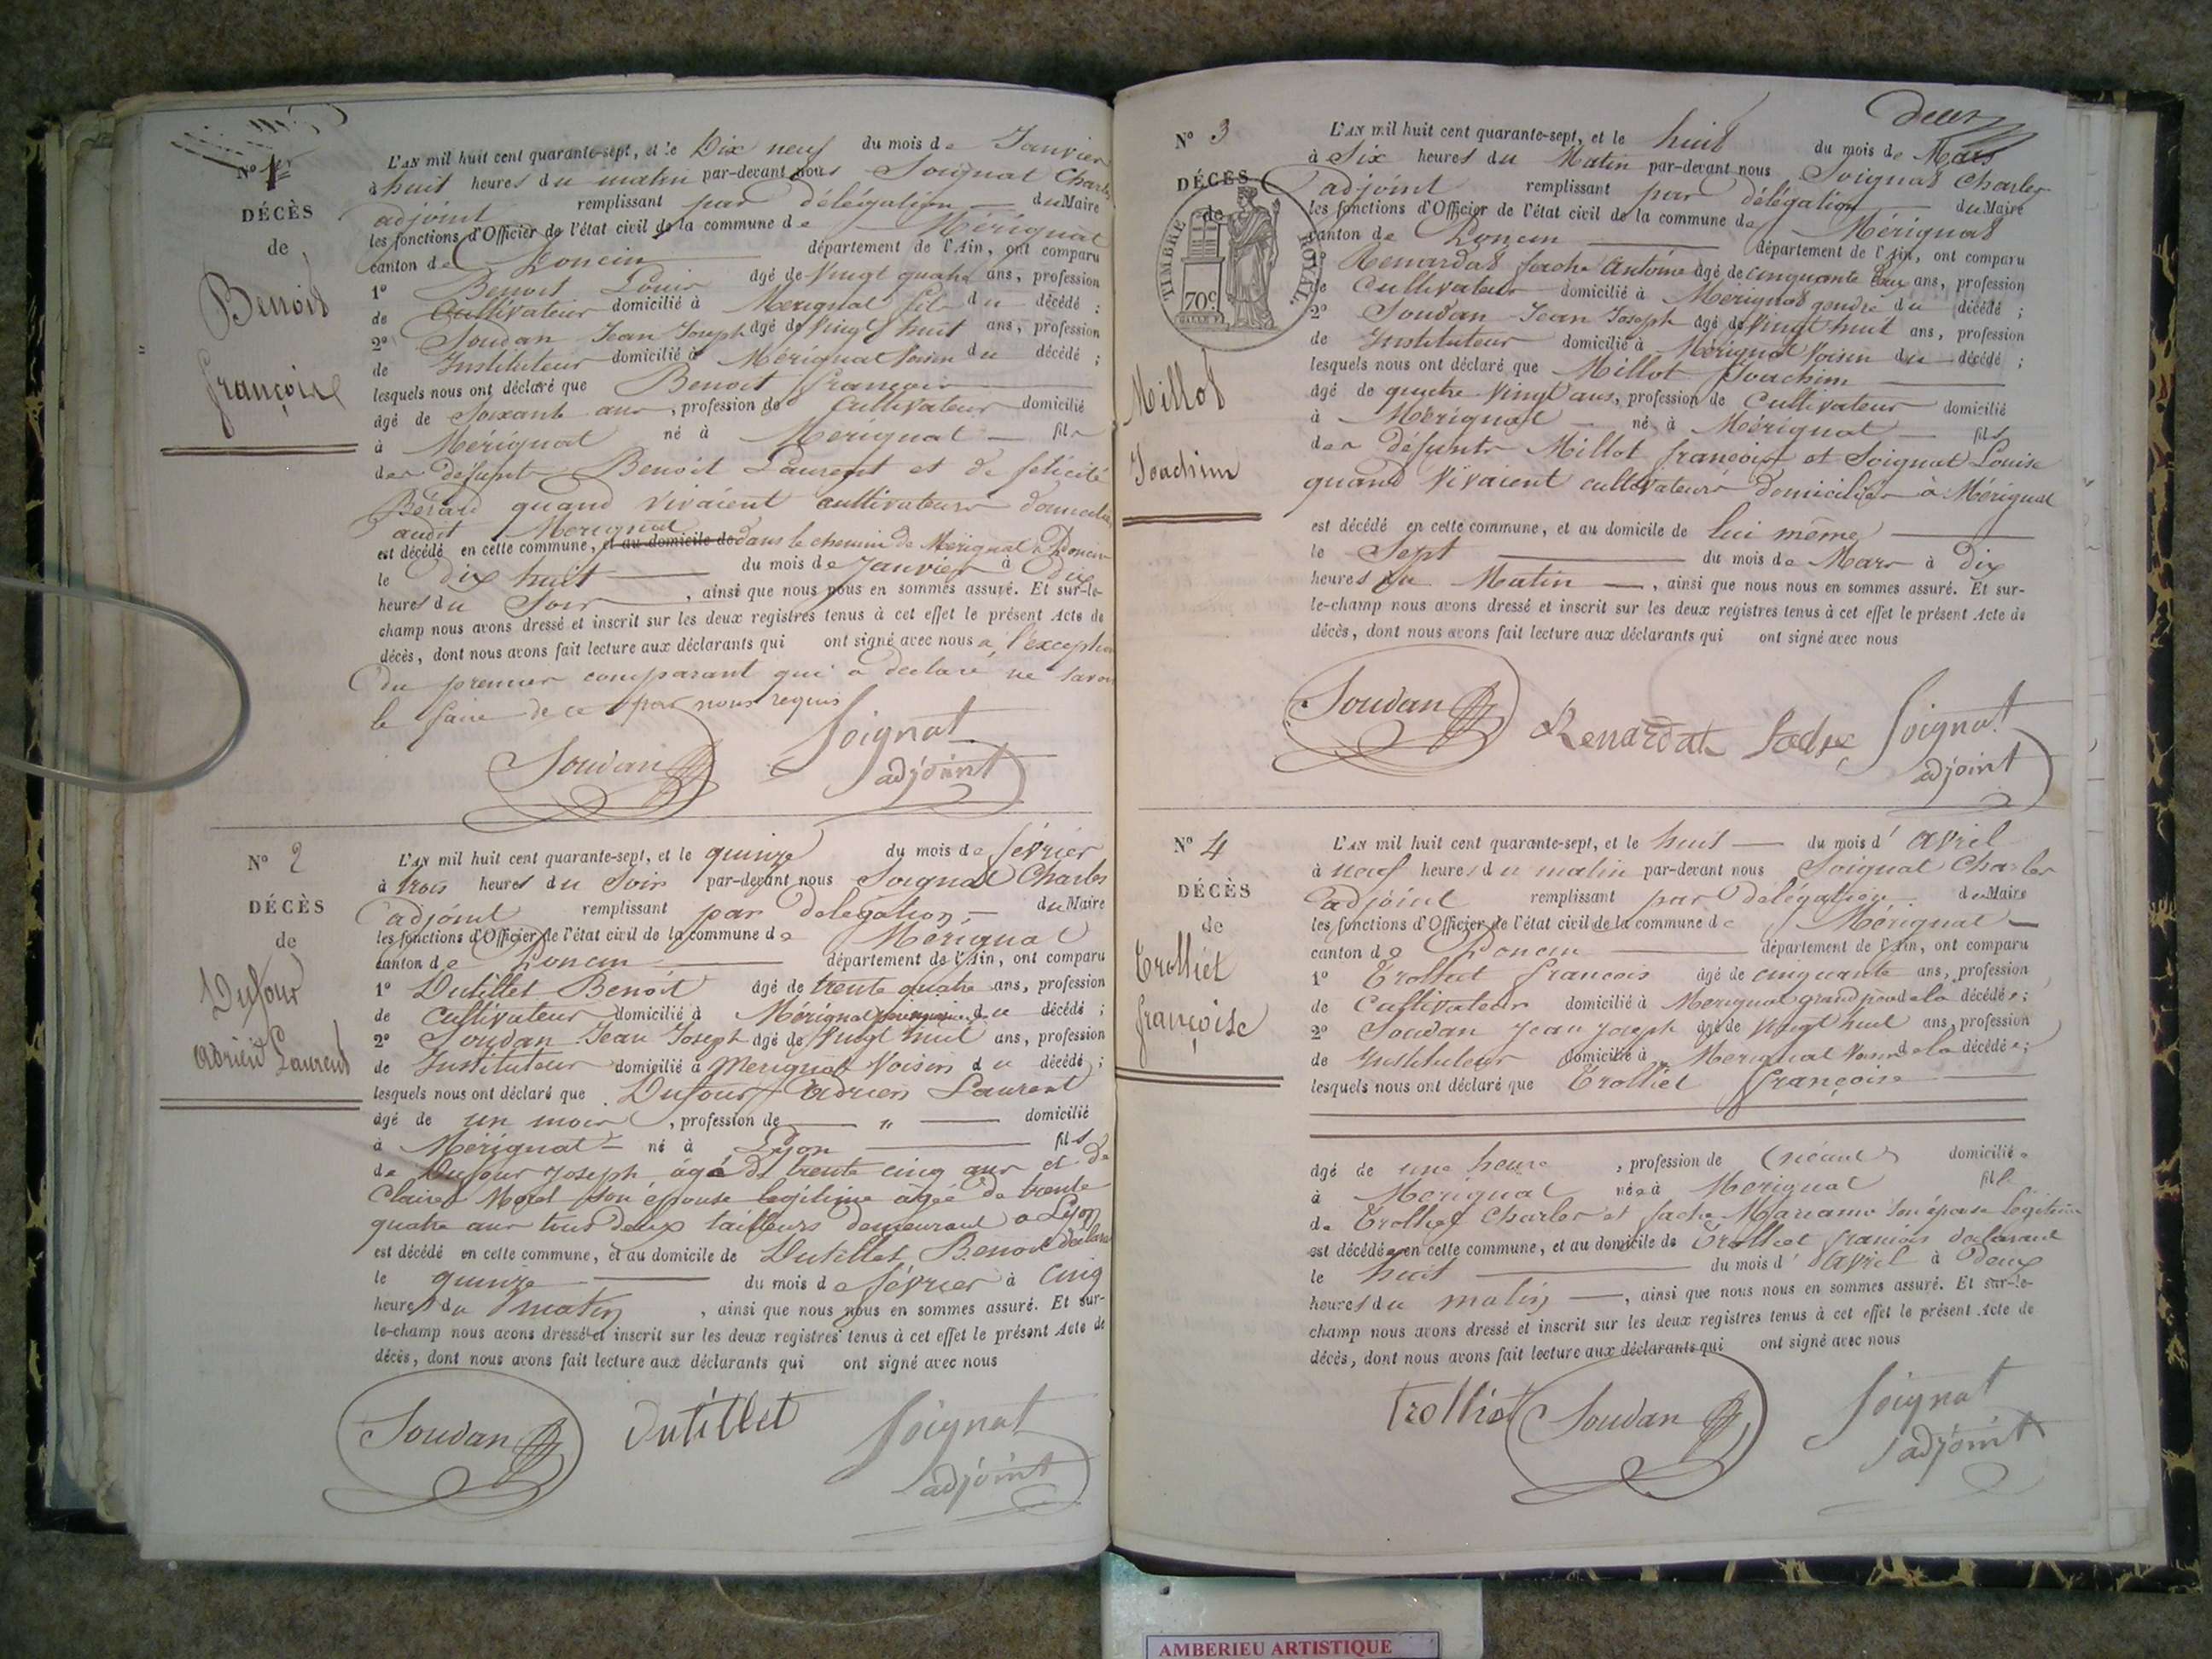 N° 1
DÉCÈS
de
Benoit
françois
L'AN mil huit cent quarante-sept, et le Dix neuf du mois de Janvier
à huit heures du matin par-devant nous Soignat Charles
adjoint remplissant par délégation du Maire
les fonctions d'Officier de l'état civil de la commune de Mérignat
canton de Poncin département de l'Ain, ont comparu
1° Benoit Louis âgé de Vingt quatre ans, profession
de Cultivateur domicilié à Merignat fils du décédé ;
2° Soudan Jean Joseph âgé de Vingt huit ans, profession
de Instituteur domicilié à Mérignat Voisin du décédé ;
lesquels nous ont déclaré que Benoit françois
âgé de Soixante ans, profession de Cultivateur domicilié
à Mérignat né à Merignat fils
des défunts Benoit Laurent et de felicité
Bérard quand vivaient cultivateurs domiciliés
audit Merignat
est décédé en cette commune, et au domicile de dans le chemin de Merignat à Poncin
le dix huit du mois de Janvier à dix
heures du Soir, ainsi que nous nous en sommes assuré. Et sur-le-
champ nous avons dressé et inscrit sur les deux registres tenus à cet effet le présent Acte de
décès, dont nous avons fait lecture aux déclarants qui ont signé avec nous à l'exception
du premier comparant qui a declaré ne savoir
le faire de ce par nous requis
Soudan Soignat
adjoint
N° 2
DÉCÈS
de
Dufour
Adrien Laurent
L'AN mil huit cent quarante-sept, et le quinze du mois de février
à trois heures du Soir par-devant nous Soignat Charles
adjoint remplissant par délégation du Maire
les fonctions d'Officier de l'état civil de la commune de Mérignat
canton de Poncin département de l'Ain, ont comparu
1° Dutillet Benoit âgé de trente quatre ans, profession
de Cultivateur domicilié à Mérignat du décédé ;
2° Soudan Jean Joseph âgé de Vingt huit ans, profession
de Instituteur domicilié à Merignat Voisin du décédé ;
lesquels nous ont déclaré que Dufour Adrien Laurent
âgé de un mois, profession de " domicilié
à Mérignat né à Lyon fils
de Dufour Joseph âgé de trente cinq ans et de
Claire Morel son épouse legitime âgée de trente
quatre ans tous deux tailleurs demeurant a Lyon
est décédé en cette commune, et au domicile de Dutillet Benoit
le quinze du mois de février à cinq
heures du matin, ainsi que nous nous en sommes assuré. Et sur-
le-champ nous avons dressé et inscrit sur les deux registres tenus à cet effet le présent Acte de
décès, dont nous avons fait lecture aux déclarants qui ont signé avec nous
Soudan Dutillet Soignat
adjoint
deux
N° 3
DÉCÈS
de
TIMBRE ROYAL
70c
Millot
Joachim
L'AN mil huit cent quarante-sept, et le huit du mois de Mars
à Six heures du Matin par-devant nous Soignat Charles
adjoint remplissant par délégation du Maire
les fonctions d'Officier de l'état civil de la commune de Mérignat
canton de Poncin département de l'Ain, ont comparu
1° Renardat fache Antoine âgé de cinquante deux ans, profession
de Cultivateur domicilié à Mérignat gendre du décédé ;
2° Soudan Jean Joseph âgé de Vingt huit ans, profession
de Instituteur domicilié à Mérignat Voisin du décédé ;
lesquels nous ont déclaré que Millot Joachim
âgé de quatre vingt ans, profession de Cultivateur domicilié
à Mérignat né à Mérignat fils
des défunts Millot françois et Soignat Louise
quand Vivaient cultivateurs domiciliés à Mérignat
est décédé en cette commune, et au domicile de lui même
le Sept du mois de Mars à dix
heures du Matin, ainsi que nous nous en sommes assuré. Et sur-
le-champ nous avons dressé et inscrit sur les deux registres tenus à cet effet le présent Acte de
décès, dont nous avons fait lecture aux déclarants qui ont signé avec nous
Soudan Renardat fache Soignat
adjoint
N° 4
DÉCÈS
de
Trolliet
françoise
L'AN mil huit cent quarante-sept, et le huit du mois d' avril
à neuf heures du matin par-devant nous Soignat Charles
adjoint remplissant par délégation du Maire
les fonctions d'Officier de l'état civil de la commune de Mérignat
canton de Poncin département de l'Ain, ont comparu
1° Trolliet francois âgé de cinquante ans, profession
de Cultivateur domicilié à Merignat grand père de la décédée ;
2° Soudan Jean Joseph âgé de vingt huit ans, profession
de Instituteur domicilié à Merignat Voisin de la décédée ;
lesquels nous ont déclaré que Trolliet françoise
âgé de une heure, profession de (néant) domiciliée
à Merignat née à Merignat fille
de Trolliet Charles et fache Marianne son épouse légitime
est décédée en cette commune, et au domicile de Trolliet francois déclarant
le huit du mois d' avril à deux
heures du matin, ainsi que nous nous en sommes assuré. Et sur-le-
champ nous avons dressé et inscrit sur les deux registres tenus à cet effet le présent Acte de
décès, dont nous avons fait lecture aux déclarants qui ont signé avec nous
Trolliet Soudan Soignat
adjoint
AMBERIEU ARTISTIQUE